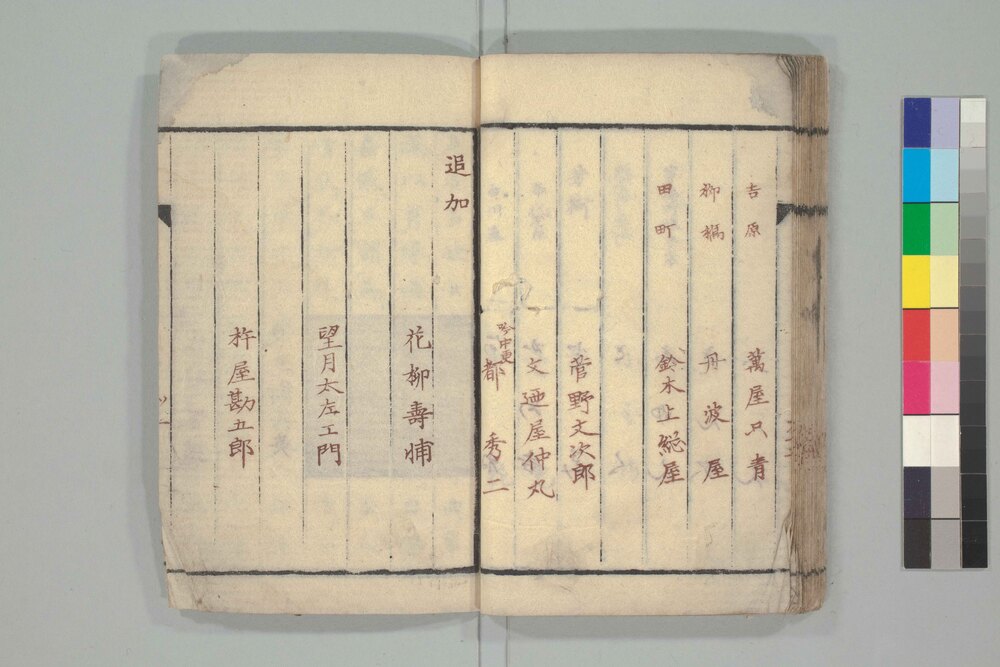 吉原 萬屋只青
柳橋 丹波屋
田町 鈴木上総屋
菅野文次郎
文 屋仲丸
吟中更 都 秀二
追加
花柳壽輔
望月太左エ門
杵屋勘五郎